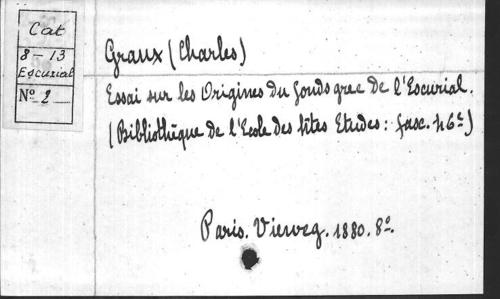 Cat
8 - 13
Escurial
Nº 2
Graux (Charles)
Essai sur les Origines du fonds grec de l'Escurial.
(Bibliothèque de l'Ecole des htes Etudes: fasc. 46e)
Paris. Vieweg. 1880. 8º.